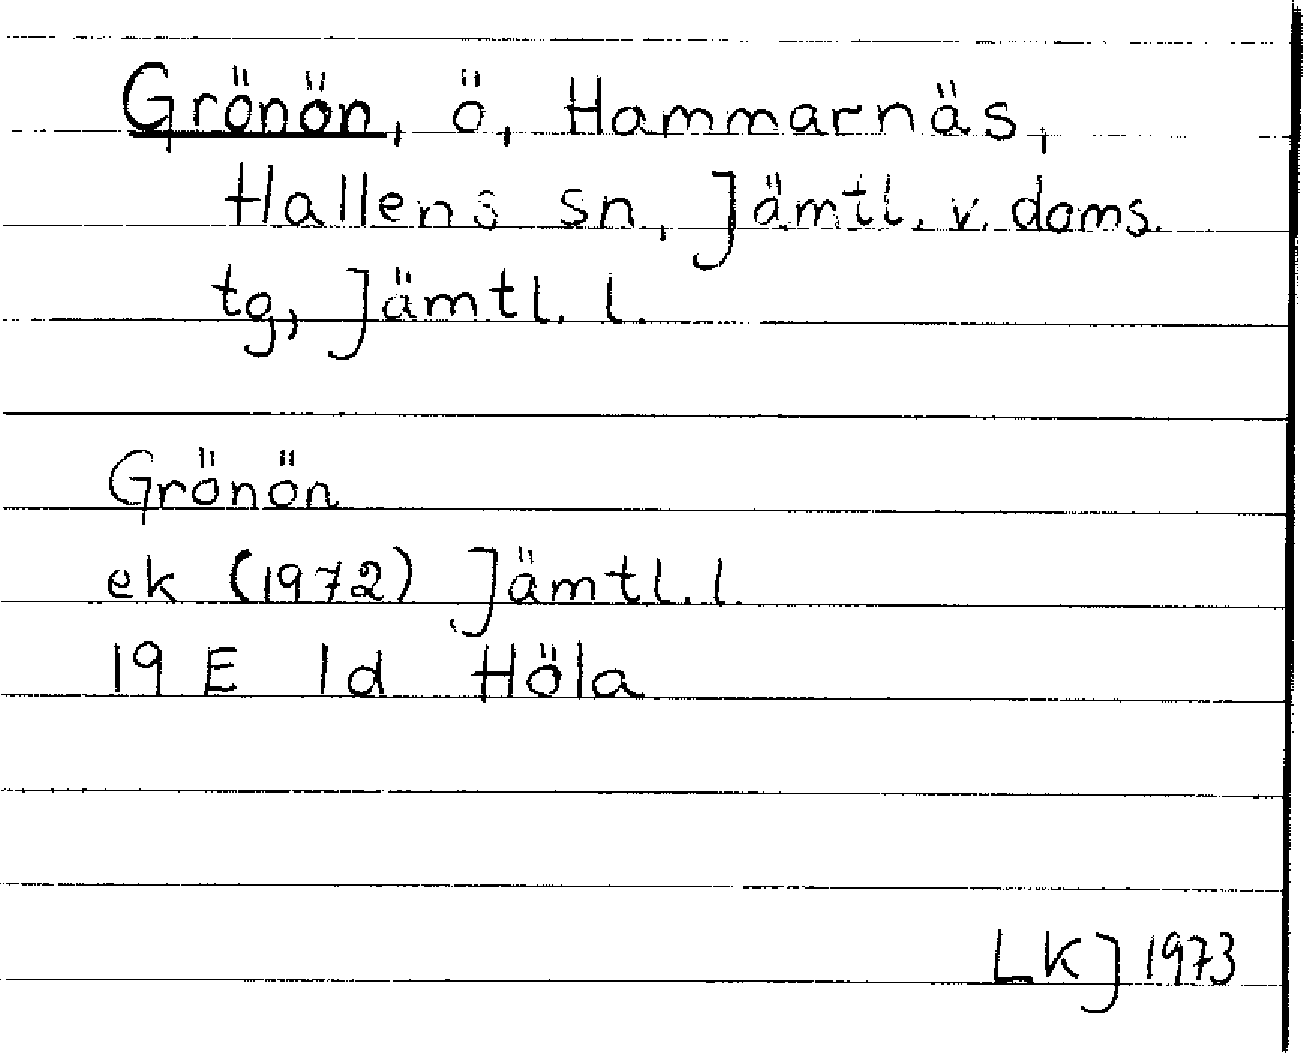 Grönön, ö, Hammarnäs,
Hallens sn, Jämtl. v. doms.
tg, Jämtl. l.
Grönön
ek (1972) Jämtl. l.
19 E 1d Höla
LKJ 1973